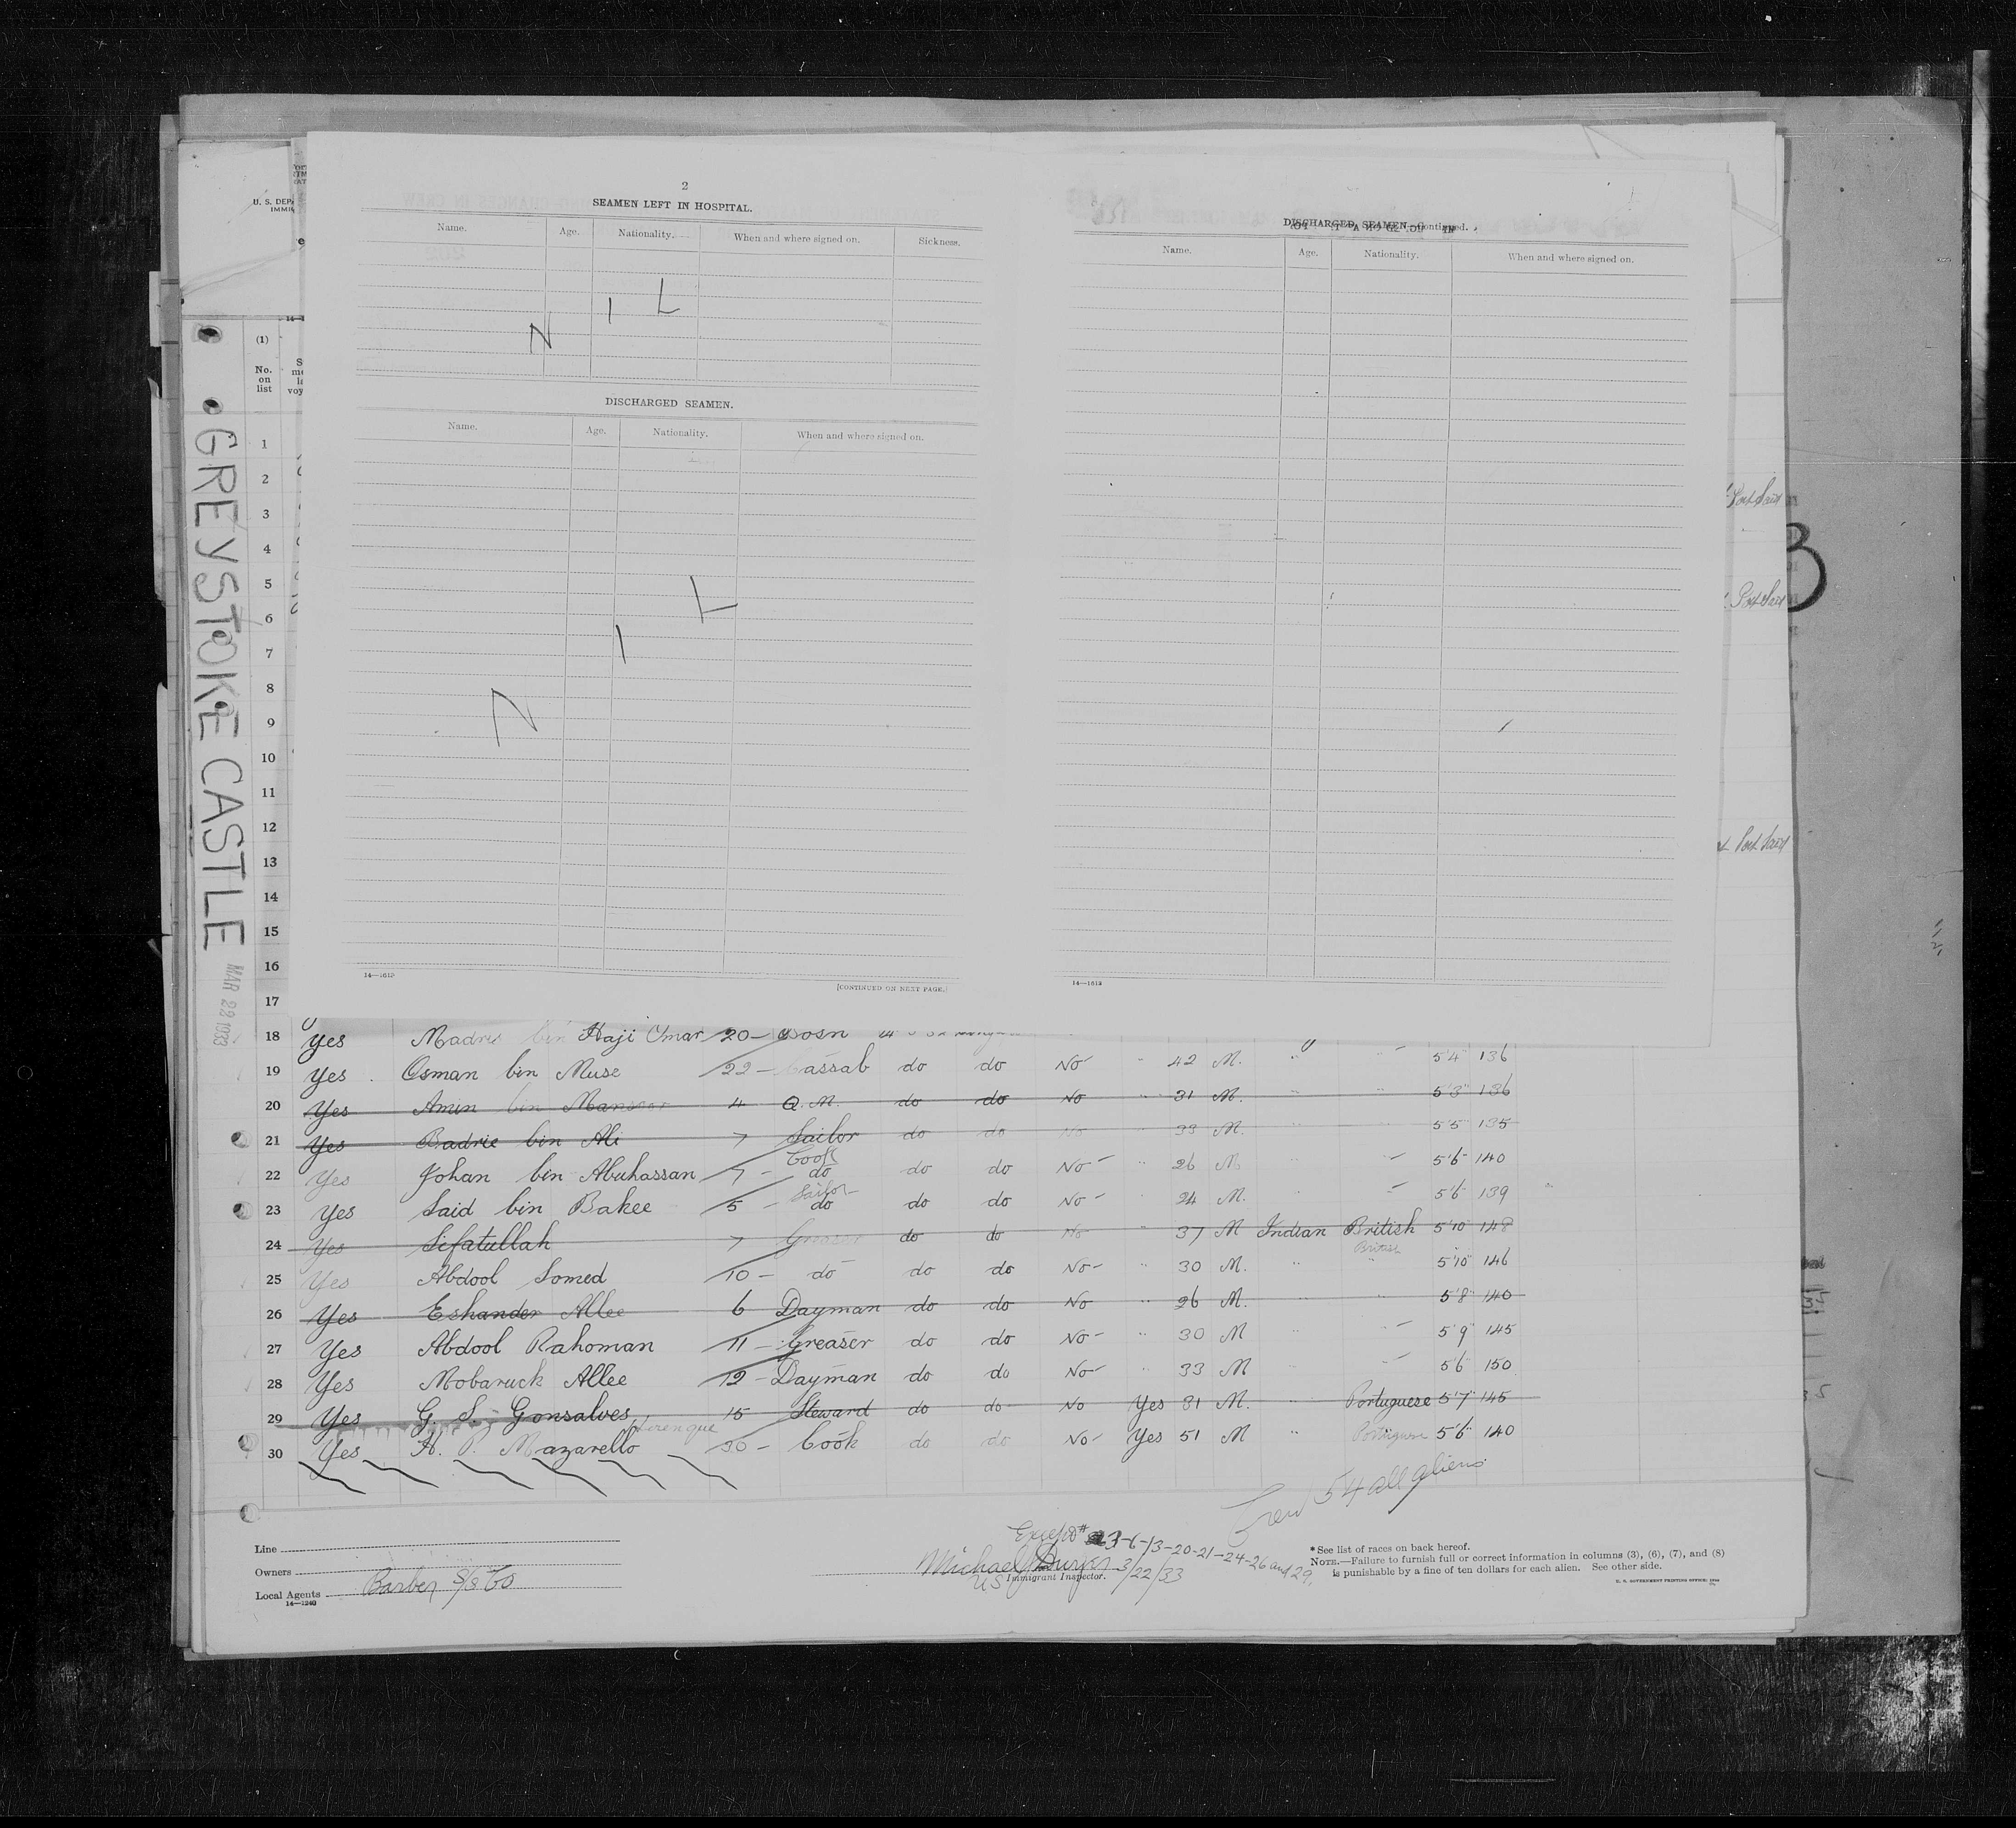 2
SEAMEN LEFT IN HOSPITAL.
Name. Age. Nationality. When and where signed on. Sickness.
N I L
DISCHARGED SEAMEN.
Name. Age. Nationality. When and where signed on.
N I L
14—1613
[CONTINUED ON NEXT PAGE.]
DISCHARGED SEAMEN—Continued.
Name. Age. Nationality. When and where signed on.
14—1613
U. S. DEP
IMMI
(1)
No. on list
GREYSTOKE CASTLE
MAR 22 1933
1
2
3
4
5
6
7
8
9
10
11
12
13
14
15
16
17
Port Said
Port Said
Port Said
18 Yes Madris bin Haji Omar 20 - Bosn
19 Yes Osman bin Muse 22 - Cassab do do No 42 M. 5'4" 136
20 Yes Amin bin Mansoor 4 Q.M. do do No 31 M. 5'3" 136
21 Yes Badrie bin Ali 7 Sailor do do No 33 M. 5'5" 135
Cook
22 Yes Johan bin Abuhassan 7 - do do do No 26 M 5'6" 140
Sailor
23 Yes Said bin Bakee 5 - do do do No 24 M. 5'6" 139
24 Yes Sifatullah 7 Greaser do do No 37 M Indian British 5'10" 148
British
25 Yes Abdool Somed 10 - do do do No 30 M. 5'10" 146
26 Yes Eshander Allee 6 Dayman do do No 26 M. 5'8" 140
27 Yes Abdool Rahoman 11 - Greaser do do No 30 M 5'9" 145
28 Yes Mobaruck Allee 12 - Dayman do do No 33 M 5'6" 150
29 Yes G. S. Gonsalves 15 Steward do do No Yes 31 M. Portuguese 5'7" 145
30 Yes H. P. Mazarello 30 - Cook do do No Yes 51 M Portuguese 5'6" 140
Crew 54 all aliens
Except #
3-6-13-20-21-24-26 and 29.
Line
Owners
Local Agents Barber S/S Co
14—1240
Michael
3/22/33
US Immigrant Inspector.
* See list of races on back hereof.
NOTE.—Failure to furnish full or correct information in columns (3), (6), (7), and (8)
is punishable by a fine of ten dollars for each alien. See other side.
U. S. GOVERNMENT PRINTING OFFICE: